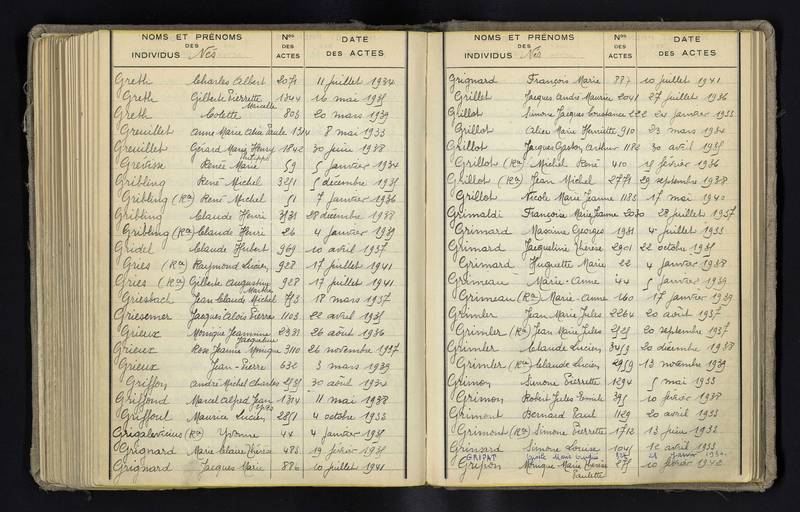 NOMS ET PRÉNOMS
DES
INDIVIDUS Nés
Nos
DES
ACTES
DATE
DES ACTES
Greth Charles Albert 2071 11 juillet 1934
Greth Gilberte Pierrette 1344 16 mai 1935
Marcelle
Greth Colette 806 20 mars 1939
Greuillet Anne Marie Paule 1314 8 mai 1933
Greuillet Gérard Marie Henry 1842 30 juin 1938
Philippe
Grévisse Renée Marie 59 5 janvier 1934
Gribling René Michel 3251 5 décembre 1935
Gribling (Rt) René Michel 51 7 janvier 1936
Gribling Claude Henri 3531 28 décembre 1938
Gribling (Rt) Claude Henri 26 4 janvier 1939
Gridel Claude Hubert 969 10 avril 1937
Gries (Rt) Raymond Lucien 928 17 juillet 1941
Gries (Rt) Gilberte Augustine 928 17 juillet 1941
Marthe
Griesbach Jean Claude Michel 773 18 mars 1937
Griesemer Jacques Alois Pierre 1103 22 avril 1935
Grieux Monique Jeannine 2381 26 août 1936
Jacqueline
Grieux Rose Jeanne Monique 3110 26 novembre 1937
Grieux Jean-Pierre 632 3 mars 1939
Griffon André Michel Charles 2535 30 août 1934
Griffond Marcel Alfred Jean 1314 11 mai 1938
Griffoul Maurice Lucien 2851 4 octobre 1933
Grigalevicius (Rt) Yvonne 44 4 janvier 1935
Grignard Marie Claire Thérèse 483 19 février 1935
Grignard Jacques Marie 886 10 juillet 1941
NOMS ET PRÉNOMS
DES
INDIVIDUS Nés
Nos
DES
ACTES
DATE
DES ACTES
Grignard François Marie 887 10 juillet 1941
Grillet Jacques André Maurice 2041 27 juillet 1936
Grillot Simone Jacques Constance 222 24 janvier 1933
Grillot Alice Marie Henriette 910 23 mars 1934
Grillot Jacques Gaston Arthur 1182 30 avril 1935
Grillot (Rt) Michel René 410 15 février 1936
Grillot (Rt) Jean Michel 2771 29 septembre 1938
Grillot Nicole Marie Jeanne 1185 17 mai 1940
Grimaldi Françoise Marie Jeanne 2030 28 juillet 1937
Grimard Maxime Georges 1981 4 juillet 1933
Grimard Jacqueline Thérèse 2901 22 octobre 1935
Grimard Huguette Marie 22 4 janvier 1938
Grimeau Marie-Anne 44 5 janvier 1939
Grimeau (Rt) Marie-Anne 160 17 janvier 1939
Grimler Jean Marie Jules 2264 20 août 1937
Grimler (Rt) Jean Marie Jules 2525 20 septembre 1937
Grimler Claude Lucien 3459 20 décembre 1938
Grimler (Rt) Claude Lucien 2959 13 novembre 1939
Grimon Simone Pierrette 1294 5 mai 1933
Grimon Robert Jules Emile 395 10 février 1938
Grimont Bernard Paul 1129 20 avril 1933
Grimont (Rt) Simone Pierrette 1712 13 juin 1933
Grimsard Simone Louise 1045 12 avril 1933
GRIPAT janvier
Gripon Monique Marie Thérèse 10 février 1940
Paulette